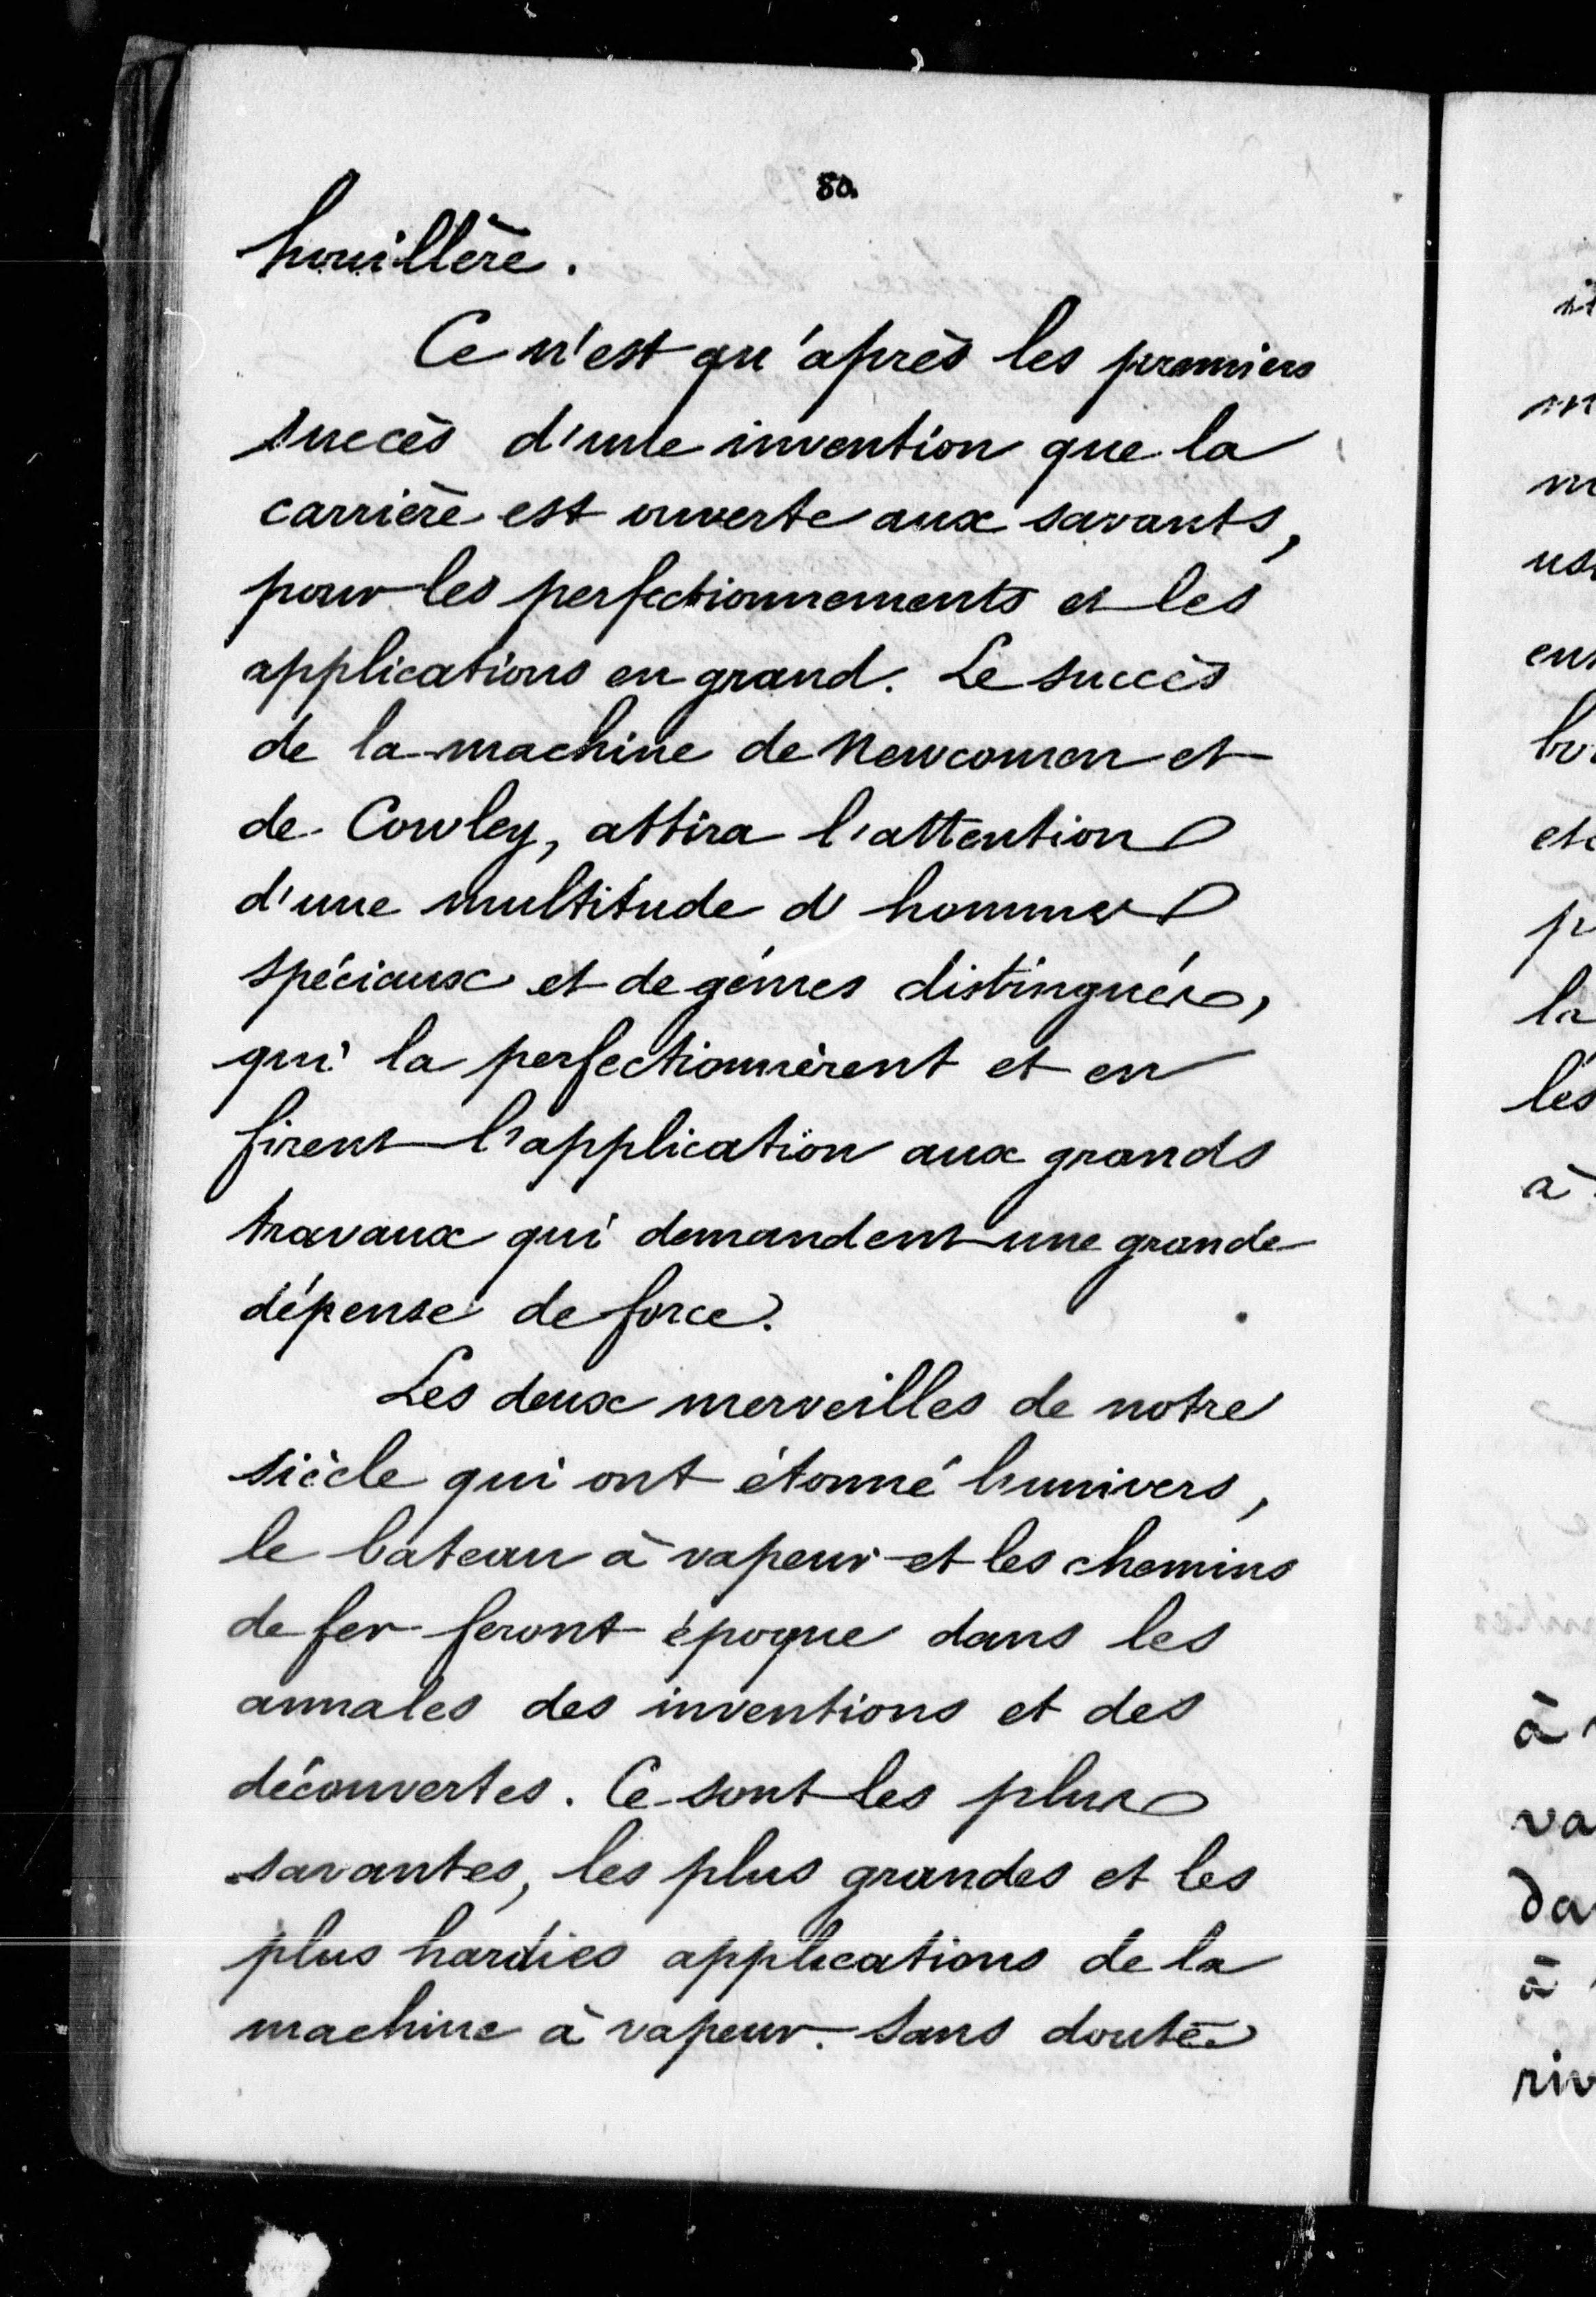 80.
houillère.
Ce n'est qu'après les premiers
succès d'une invention que la
carrière est ouverte aux savants,
pour les perfectionnements et les
applications en grand. Le succès
de la machine de Newcomen et
de Cowley, attira l'attention
d'une multitude d'hommes
spéciaux et de génies distingués,
qui la perfectionnèrent et en
firent l'application aux grands
travaux qui demandent une grande
dépense de force.
Les deux merveilles de notre
siècle qui ont étonné l'univers,
le bateau à vapeur et les chemins
de fer feront époque dans les
annales des inventions et des
découvertes. Ce sont les plus
savantes, les plus grandes et les
plus hardies applications de la
machine à vapeur. Sans doute